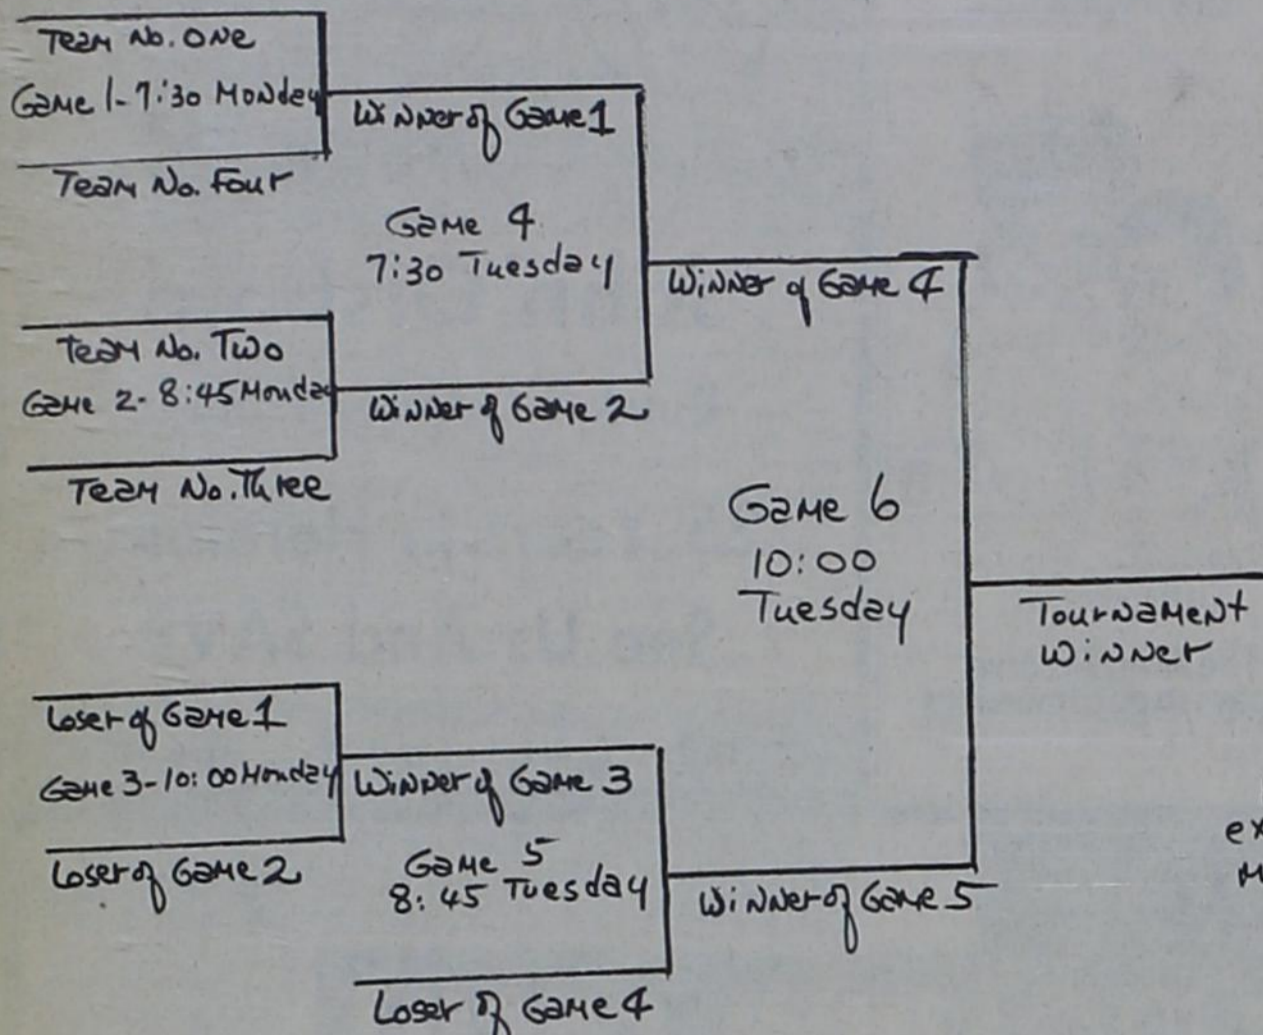 Team No. One
Game 1- 7:30 Monday
Team No. Four
Winner of Game 1
Game 4
7:30 Tuesday
Team No. Two
Game 2- 8:45 Monday
Team No. Three
Winner of Game 2
Winner of Game 4
Game 6
10:00
Tuesday
Tournament
Winner
Loser of Game 1
Game 3-10:00 Monday
Loser of Game 2
Winner of Game 3
Game 5
8:45 Tuesday
Loser of Game 4
Winner of Game 5
ex